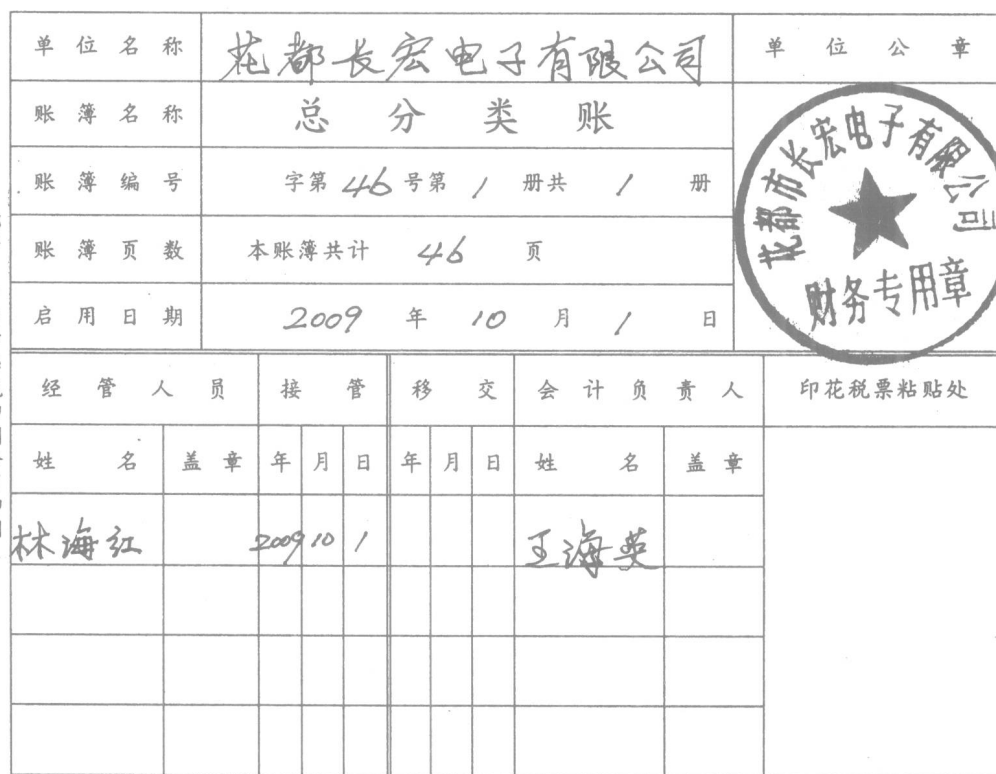 单位名称 花都长宏电子有限公司 单位公章
账簿名称 总分类账
账簿编号 字第46号第1册共1册
账簿页数 本账簿共计46页
启用日期 2009年10月1日
花都市长宏电子有限公司
财务专用章
经管人员 接管 移交 会计负责人 印花税票粘贴处
姓名 盖章 年 月 日 年 月 日 姓名 盖章
林海红 2009 10 1 王海英